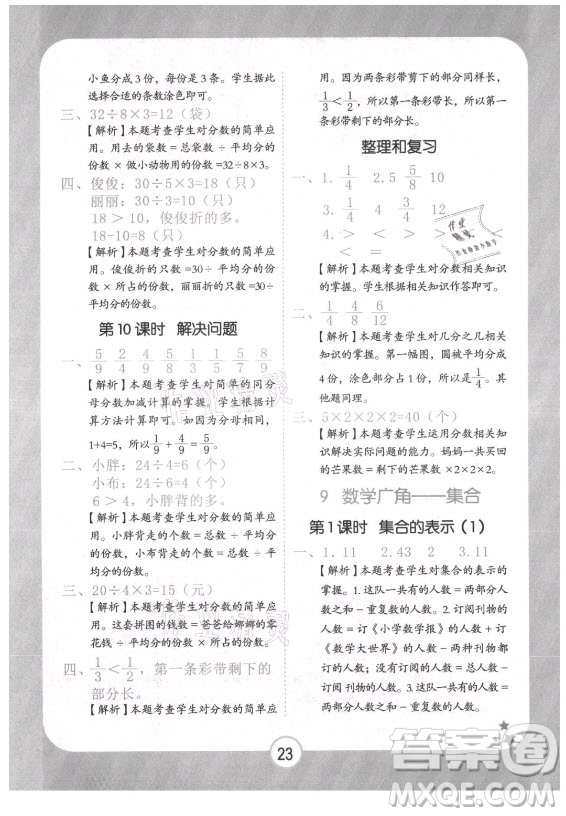 小鱼分成 3 份，每份是 3 条。学生据此
选择合适的条数涂色即可。
三、32÷8×3=12（袋）
【解析】本题考查学生对分数的简单应
用。用去的袋数 = 总袋数 ÷ 平均分的
份数 × 做小动物用的份数 =32÷8×3。
四、俊俊：30÷5×3=18（只）
丽丽：30÷3=10（只）
18 > 10，俊俊折的多。
18-10=8（只）
【解析】本题考查学生对分数的简单应
用。俊俊折的只数 =30÷ 平均分的份
数 × 所占的份数，丽丽折的只数 =30÷
平均分的份数。
第 10 课时 解决问题
一、5/9 2/4 4/9 5/8 1/5 5/6 8/9
【解析】本题考查学生对简单的同分
母分数加减计算的掌握。学生根据计
算方法计算即可。如因为分母相同，
1+4=5，所以 1/9 + 4/9 = 5/9。
二、小胖：24÷4=6（个）
小布：24÷6=4（个）
6 > 4，小胖背的多。
【解析】本题考查学生对分数的简单应
用。小胖背的个数 = 总个数 ÷ 平均分
的份数，小布背的个数 = 总个数 ÷ 平
均分的份数。
三、20÷4×3=15（元）
【解析】本题考查学生对分数的简单应
用。这套拼图的钱数 = 爸爸给娜娜的零
花钱 ÷ 平均分的份数 × 所占的份数。
四、1/3 < 1/2，第一条彩带剩下的
部分长。
【解析】本题考查学生对分数的简单应
用。因为两条彩带剪下的部分同样长，
1/3 < 1/2，所以第一根彩带的总长 > 第二
根彩带的总长，所以第一根彩带剩下
的部分长。
整理和复习
一、1. 1/4 2. 5 5/8 10
3. 1/2 4/4 4. > <
< > = <
【解析】本题考查学生对分数相关知识
的掌握。学生根据相关知识作答即可。
二、1/4 4/8 6/12
【解析】本题考查学生对几分之几相关
知识的掌握。第一幅图，圆被平均分成
4 份，涂了 1 份，所以是 1/4。其
他题同理。
三、5×2×2×2=40（个）
【解析】本题考查学生运用分数相关知
识解决实际问题的能力。妈妈一共买
的芒果数 = 剩下的芒果数 ×2×2×2。
9 数学广角——集合
第 1 课时 集合的表示（1）
一、1. 11 2. 43 2 3. 11
【解析】本题考查学生对集合的表示
的掌握。1. 这队一共有的人数 = 两部分人
数之和 - 重复数的人数。2. 订阅刊物的
人数 = 订《小学数学报》的人数 + 订
《数学大世界》的人数 - 两种都订的人
数；没有订阅的人数 = 总人数 - 订
阅刊物的人数。3. 这队一共有的人数 =
两部分人数之和 - 重复数的人数。
23
答案圈
MXQE.COM